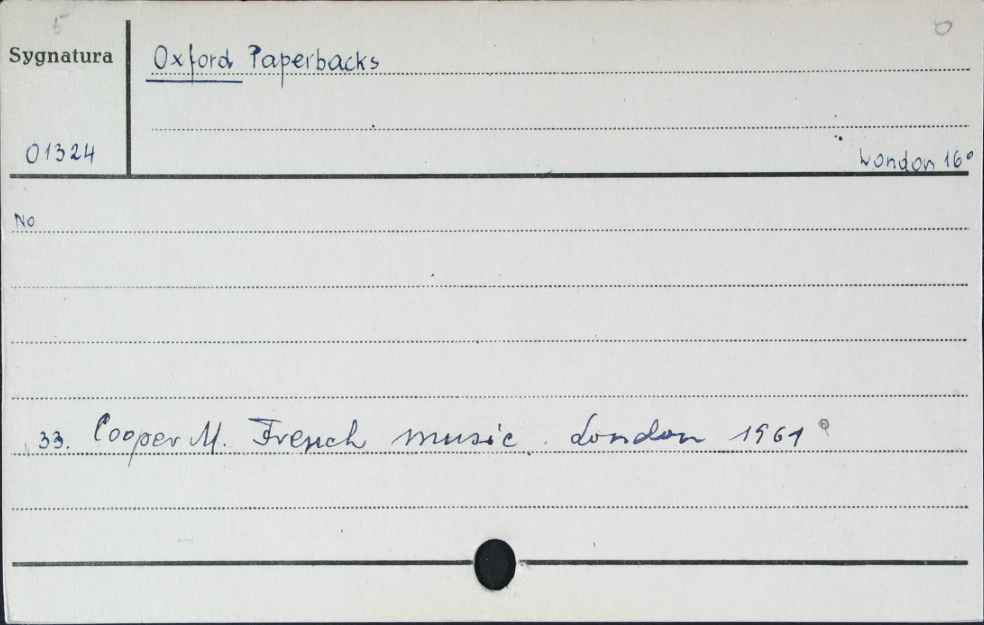 5
Sygnatura
Oxford Paperbacks
01324
London 16°
No
33. Cooper M. French music. London 1961